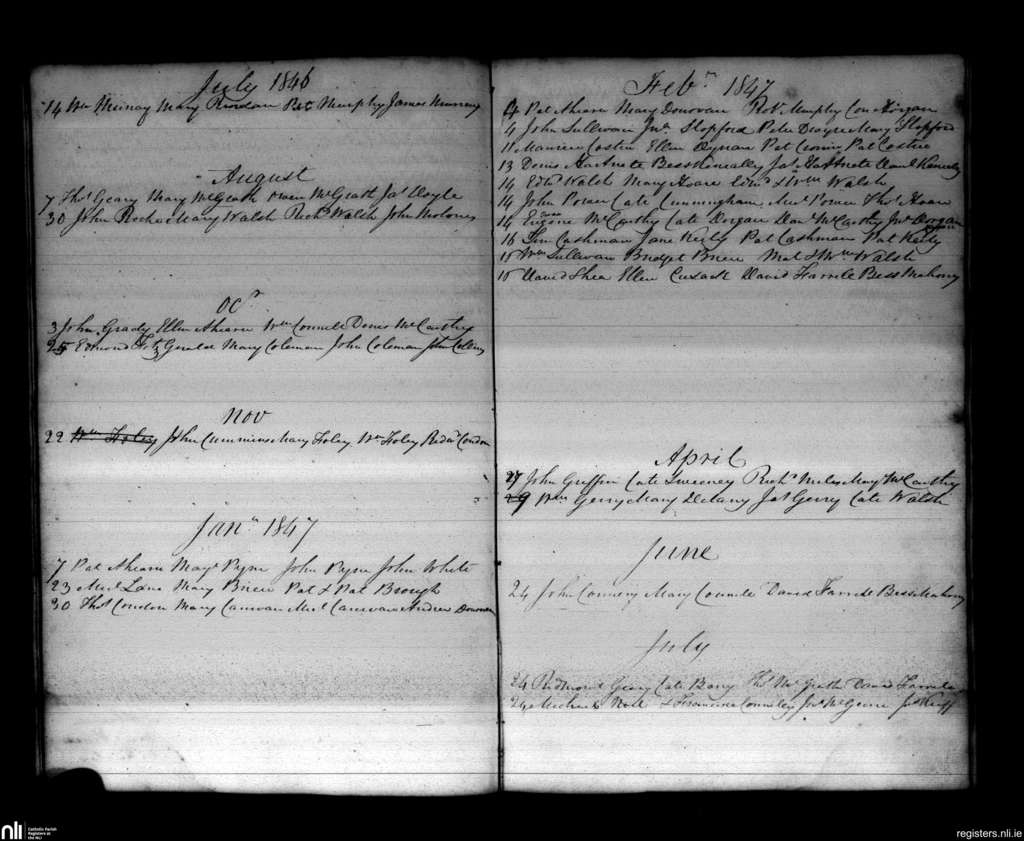 July 1846
14 Wm Murray Mary Riordan Pat Murphy James Murray
August
7 Thos Geary Mary McGrath Owen McGrath Jas Doyle
30 John Roche Mary Walsh Richd Walsh John Molony
Oct
3 John Grady Ellen Ahearn Wm Connell Denis McCarthy
25 Edmond Fitz Gerald Mary Coleman John Coleman John Collins
Nov
22 Wm Foley John Cummins Mary Foley Wm Foley Condon
Jany 1847
7 Pat Ahearn Mary Pyne John Pyne John White
23 Michl Lane Mary Brien Pat & Pat Brough
30 Thos Condon Mary Canavan Michl Canavan Andrew Donovan
Feby 1847
4 Pat Ahearn Mary Donovan Robt Murphy Con
4 John Sullivan Stopford Peter Mary Stopford
11 Maurice Costin Ellen Dynan Pat Cronin Pat Costin
13 Denis Hartnete Bess Kineally Jas Hartnete Danl
14 Edwd Walsh Mary Hoare Edwd & Wm Walsh
14 John Power Cate Cunningham Michl Power Thos Hoare
14 Eugene McCarthy Cate Dorgan Danl McCarthy Dorgan
16 Tim Cashman Jane Kerly Pat Cashman Pat Kerly
15 Wm Sullivan Bridget Brien Mat & Wm Walsh
15 David Shea Ellen Cusack David Farrell Bess Mahony
April
27 John Griffin Cate Sweeney Richd Mary McCarthy
29 Wm Gerry Mary Delany Jas Gerry Cate Walsh
June
24 John Connery Mary Connell David Farrell Bess Mahony
July
24 Redmond Geary Cate Barry Thos McGrath David Farrell
24 Michael & Frances Connelly